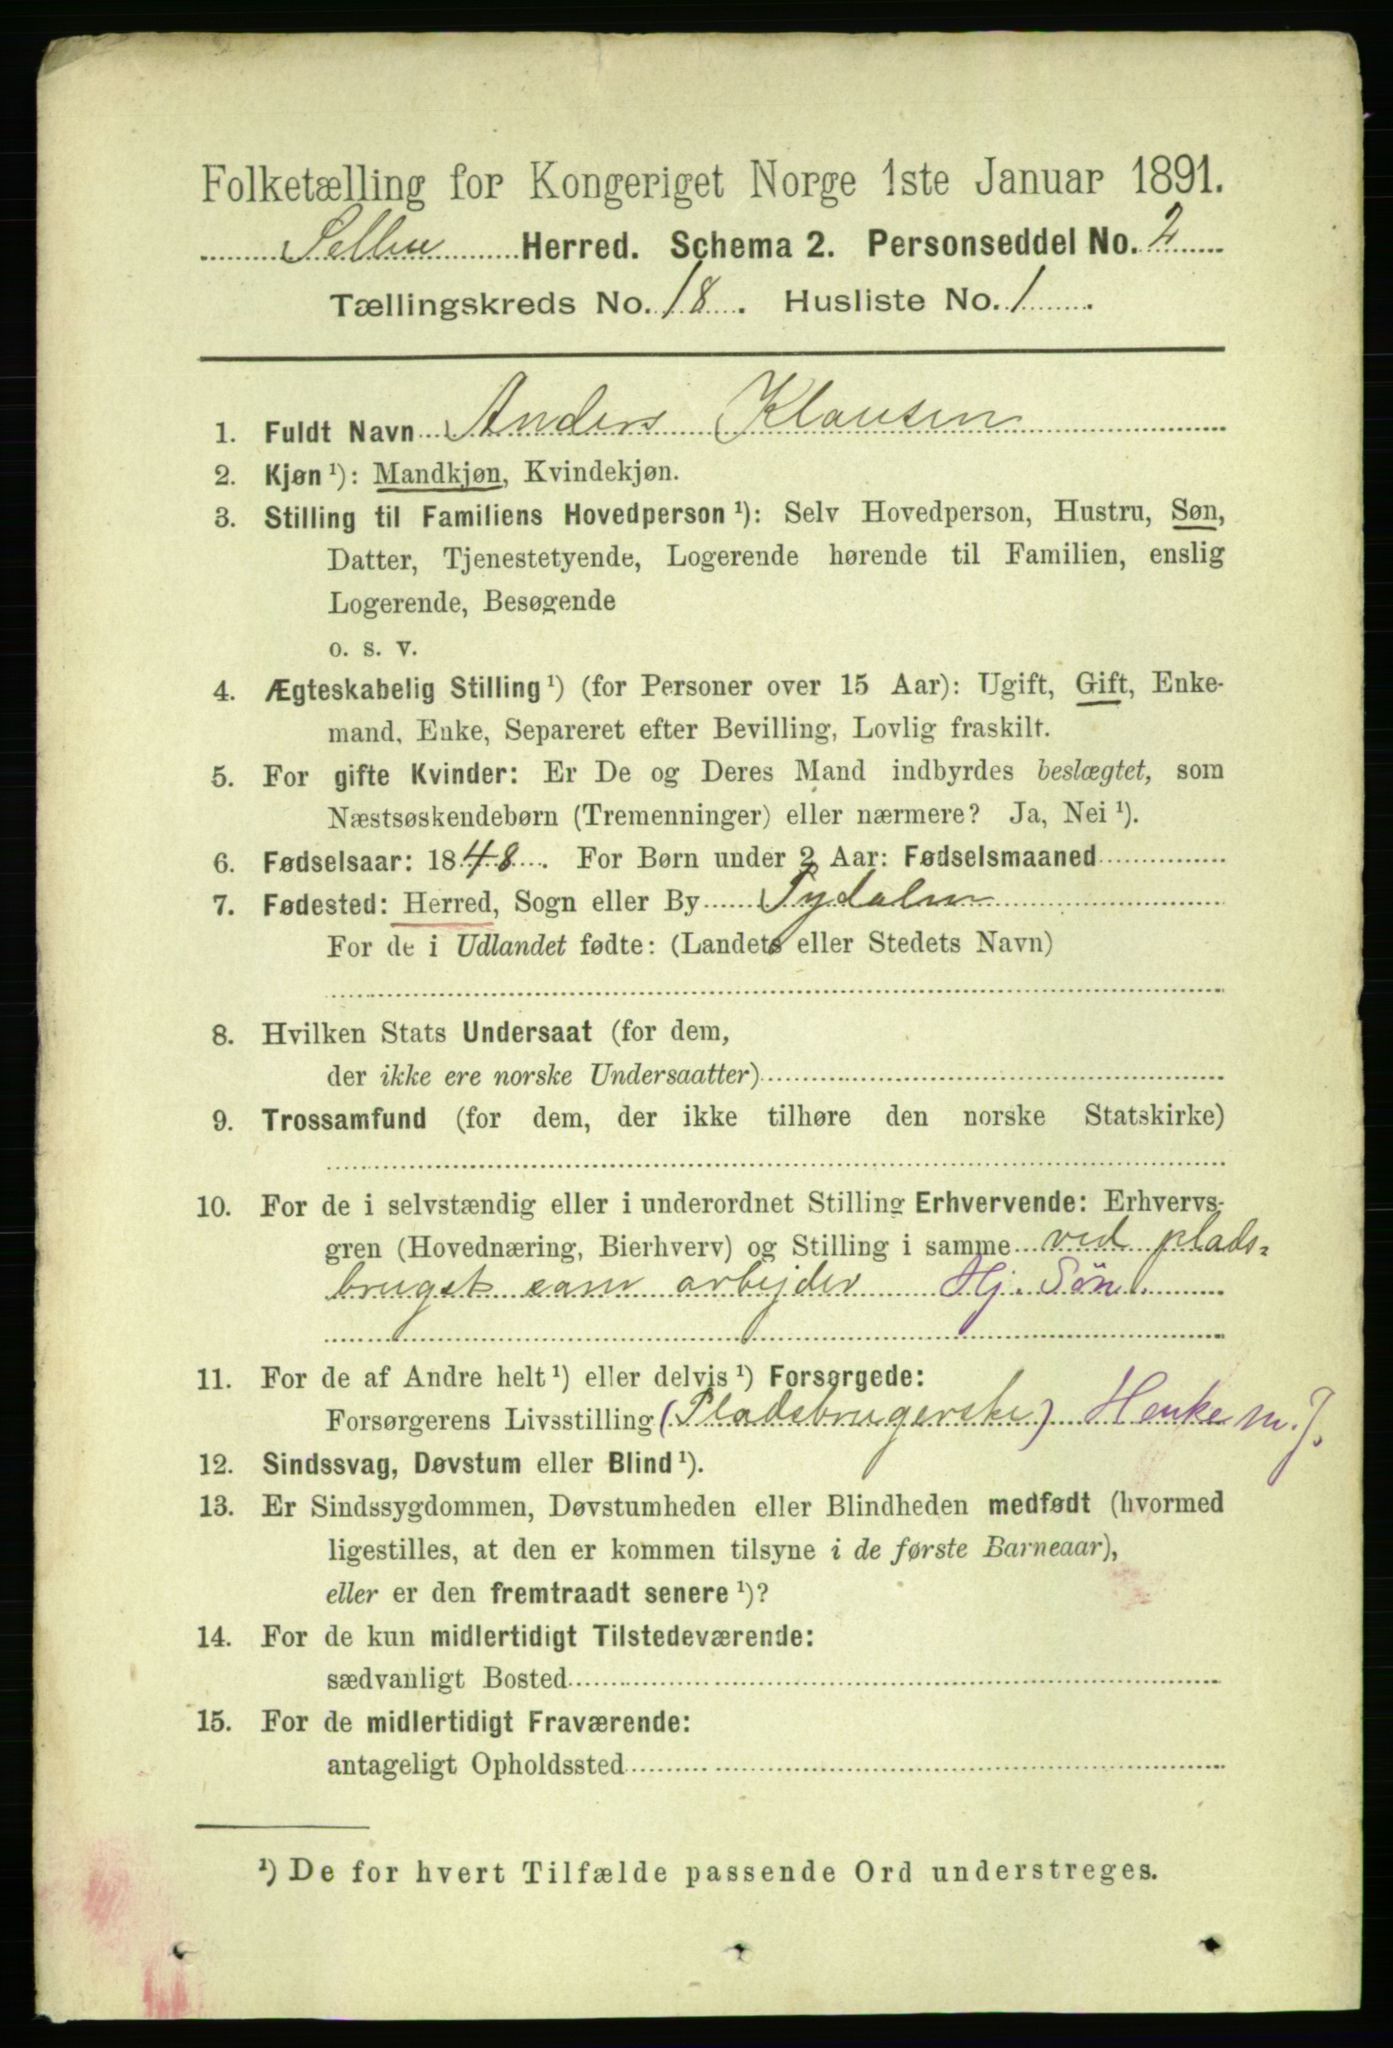 Folketælling for Kongeriget Norge 1ste Januar 1891.
Selbu Herred. Schema 2. Personseddel No. 2
Tællingskreds No. 18. Husliste No. 1.
1. Fuldt Navn Anders Klausen
2. Kjøn ¹): Mandkjøn, Kvindekjøn.
3. Stilling til Familiens Hovedperson ¹): Selv Hovedperson, Hustru, Søn,
Datter, Tjenestetyende, Logerende hørende til Familien, enslig
Logerende, Besøgende
o. s. v.
4. Ægteskabelig Stilling ¹) (for Personer over 15 Aar): Ugift, Gift, Enke-
mand, Enke, Separeret efter Bevilling, Lovlig fraskilt.
5. For gifte Kvinder: Er De og Deres Mand indbyrdes beslægtet, som
Næstsøskendebørn (Tremenninger) eller nærmere? Ja, Nei ¹).
6. Fødselsaar: 1848. For Børn under 2 Aar: Fødselsmaaned
7. Fødested: Herred, Sogn eller By Tydalen
For de i Udlandet fødte: (Landets eller Stedets Navn)
8. Hvilken Stats Undersaat (for dem,
der ikke ere norske Undersaatter)
9. Trossamfund (for dem, der ikke tilhøre den norske Statskirke)
10. For de i selvstændig eller i underordnet Stilling Erhvervende: Erhvervs-
gren (Hovednæring, Bierhverv) og Stilling i samme ved plads-
bruget som arbejder Hj. Søn.
11. For de af Andre helt ¹) eller delvis ¹) Forsørgede:
Forsørgerens Livsstilling (Pladsbrugerske) Henke m. J.
12. Sindssvag, Døvstum eller Blind ¹).
13. Er Sindssygdommen, Døvstumheden eller Blindheden medfødt (hvormed
ligestilles, at den er kommen tilsyne i de første Barneaar),
eller er den fremtraadt senere ¹)?
14. For de kun midlertidigt Tilstedeværende:
sædvanligt Bosted
15. For de midlertidigt Fraværende:
antageligt Opholdssted
¹) De for hvert Tilfælde passende Ord understreges.